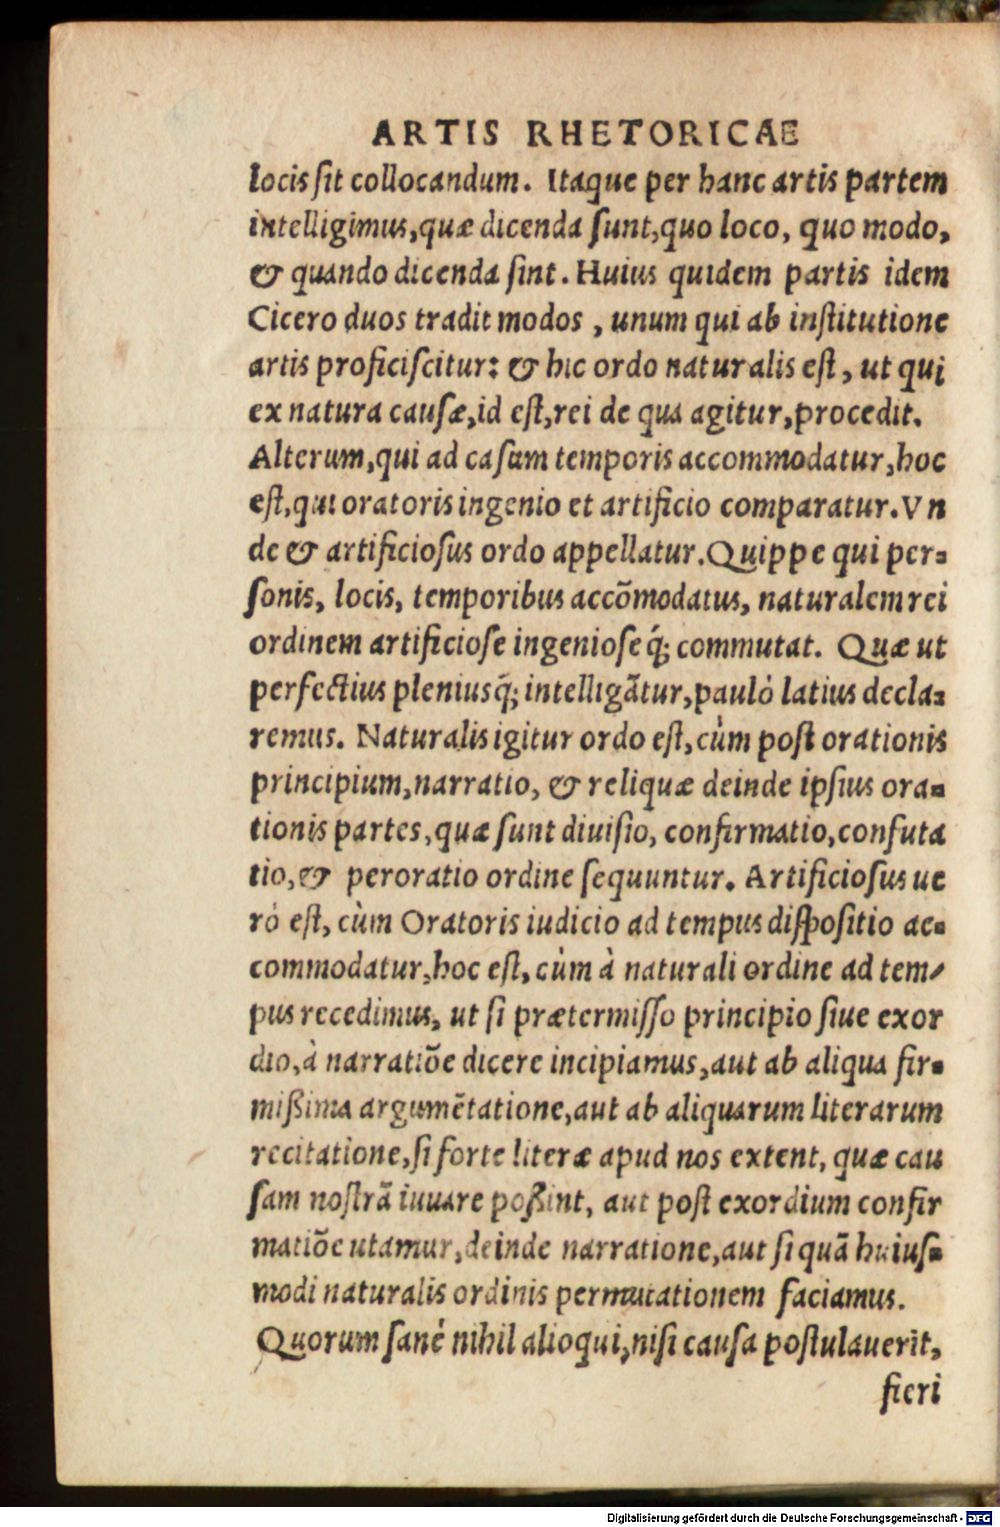 ARTIS RHETORICAE
locis sit collocandum. Itaque per hanc artis partem
intelligimus, quæ dicenda sunt, quo loco, quo modo,
& quando dicenda sint. Huius quidem partis idem
Cicero duos tradit modos, unum qui ab institutione
artis proficiscitur: & hic ordo naturalis est, ut qui
ex natura causæ, id est, rei de qua agitur, procedit.
Alterum, qui ad casum temporis accommodatur, hoc
est, qui oratoris ingenio et artificio comparatur. Vn
de & artificiosus ordo appellatur. Quippe qui per-
sonis, locis, temporibus accõmodatus, naturalem rei
ordinem artificiose ingenioseq́; commutat. Quæ ut
perfectius pleniusq́; intelligãtur, paulò latius decla-
remus. Naturalis igitur ordo est, cùm post orationis
principium, narratio, & reliquæ deinde ipsius ora-
tionis partes, quæ sunt diuisio, confirmatio, confuta
tio, & peroratio ordine sequuntur. Artificiosus ue
rò est, cùm Oratoris iudicio ad tempus dispositio ac-
commodatur, hoc est, cùm à naturali ordine ad tem-
pus recedimus, ut si prætermisso principio siue exor
dio, à narratiõe dicere incipiamus, aut ab aliqua fir-
mißima argumẽtatione, aut ab aliquarum literarum
recitatione, si forte literæ apud nos extent, quæ cau
sam nostrã iuuare poßint, aut post exordium confir
matiõe utamur, deinde narratione, aut si quã huius-
modi naturalis ordinis permutationem faciamus.
Quorum sanè nihil alioqui, nisi causa postulauerit,
fieri
Digitalisierung gefördert durch die Deutsche Forschungsgemeinschaft - DFG